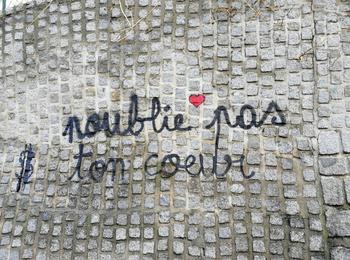 noublie pas
ton coeur
$